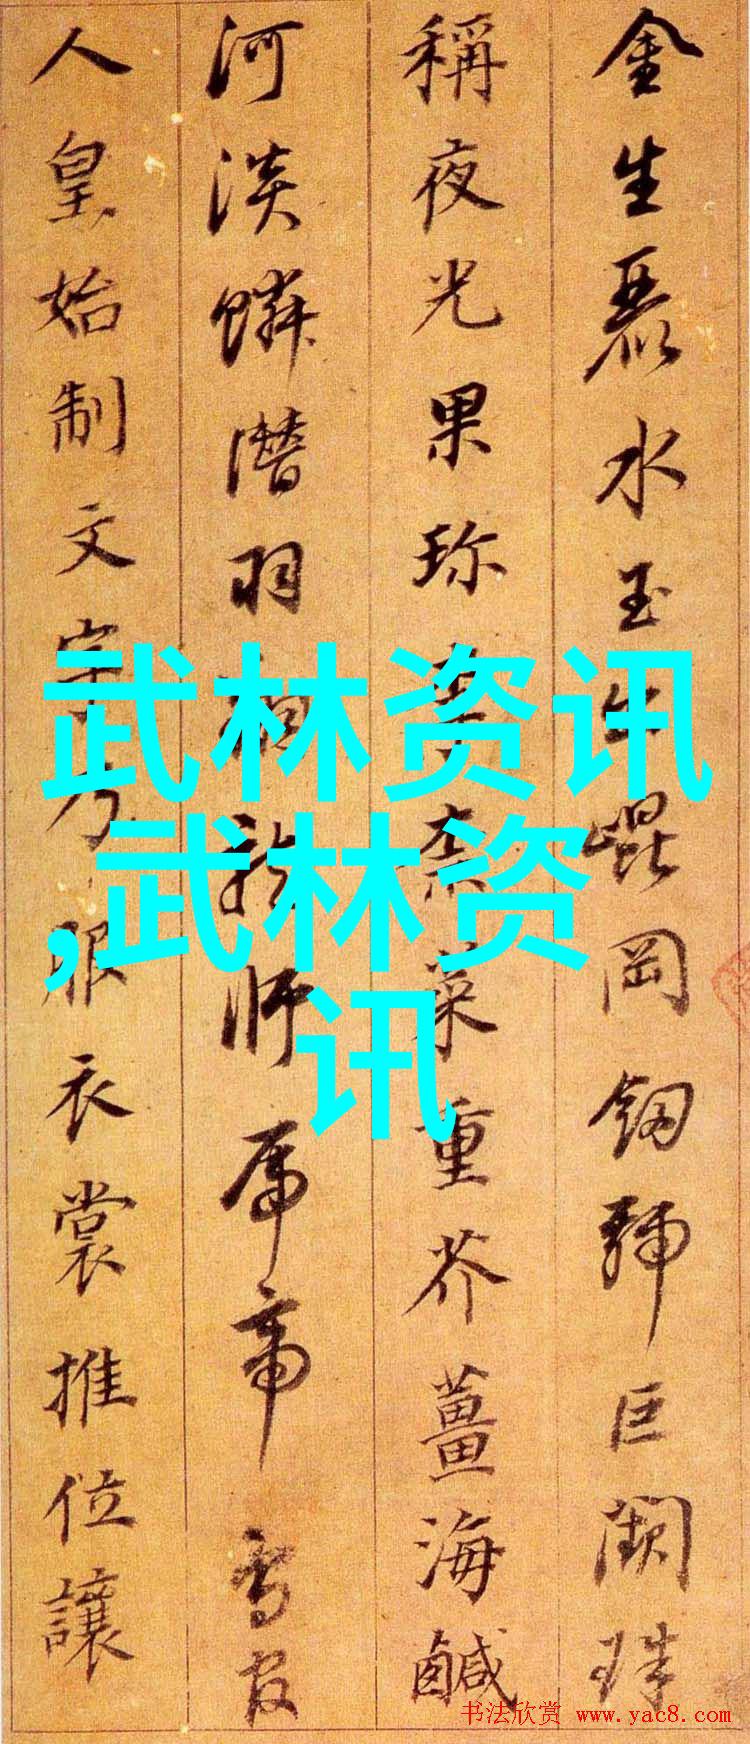 金生麗水玉出崐岡劒號巨闕珠
稱夜光果珎李柰菜重芥薑海鹹
河淡鱗潛羽翔龍師火帝鳥官
人皇始制文字乃服衣裳推位讓
武林资讯
,武林资
讯
书法欣赏 www.yac8.com